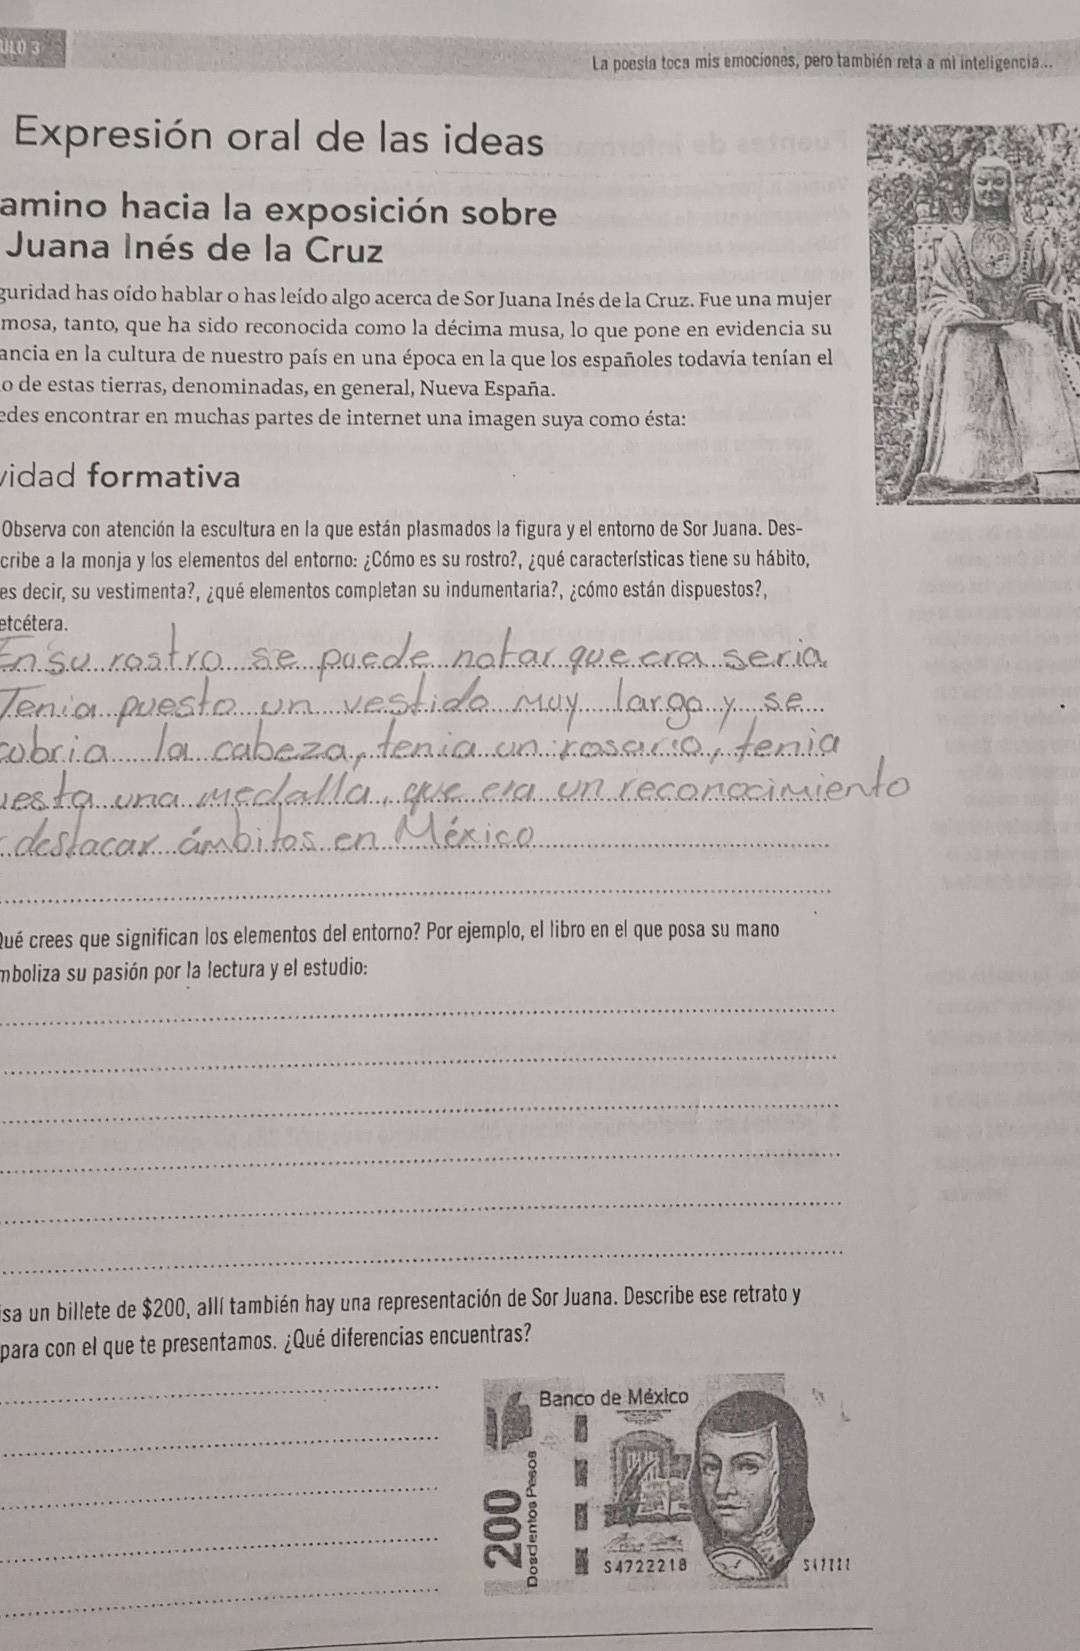 ULO 3
La poesía toca mis emociones, pero también reta a mi inteligencia...
Expresión oral de las ideas
amino hacia la exposición sobre
Juana Inés de la Cruz
guridad has oído hablar o has leído algo acerca de Sor Juana Inés de la Cruz. Fue una mujer
mosa, tanto, que ha sido reconocida como la décima musa, lo que pone en evidencia su
ancia en la cultura de nuestro país en una época en la que los españoles todavía tenían el
o de estas tierras, denominadas, en general, Nueva España.
edes encontrar en muchas partes de internet una imagen suya como ésta:
vidad formativa
Observa con atención la escultura en la que están plasmados la figura y el entorno de Sor Juana. Des-
cribe a la monja y los elementos del entorno: ¿Cómo es su rostro?, ¿qué características tiene su hábito,
es decir, su vestimenta?, ¿qué elementos completan su indumentaria?, ¿cómo están dispuestos?,
etcétera.
En su rostro se puede notar que era seria.
Tenia puesto un vestido muy largo y se
cobria la cabeza, tenia un rosario, tenia
uesta una medalla, que era un reconocimiento
destacar ámbitos en México
Qué crees que significan los elementos del entorno? Por ejemplo, el libro en el que posa su mano
mboliza su pasión por la lectura y el estudio:
isa un billete de $200, allí también hay una representación de Sor Juana. Describe ese retrato y
para con el que te presentamos. ¿Qué diferencias encuentras?
Banco de México
200
Doscientos Pesos
S4722218